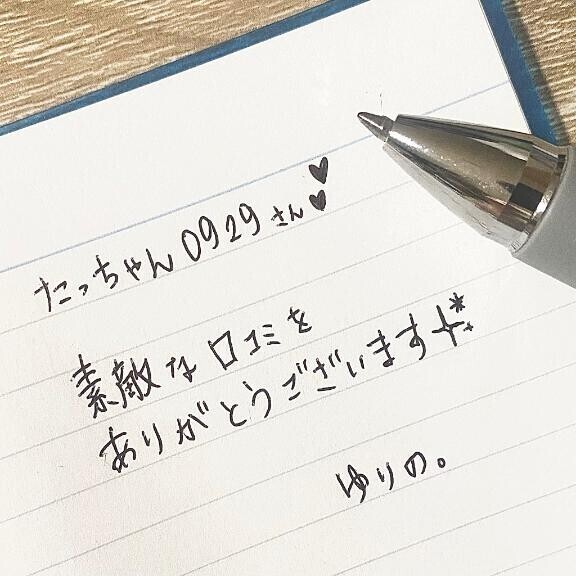 たっちゃん0929さん♥♥
素敵な口コミを
ありがとうございます
ゆりの。